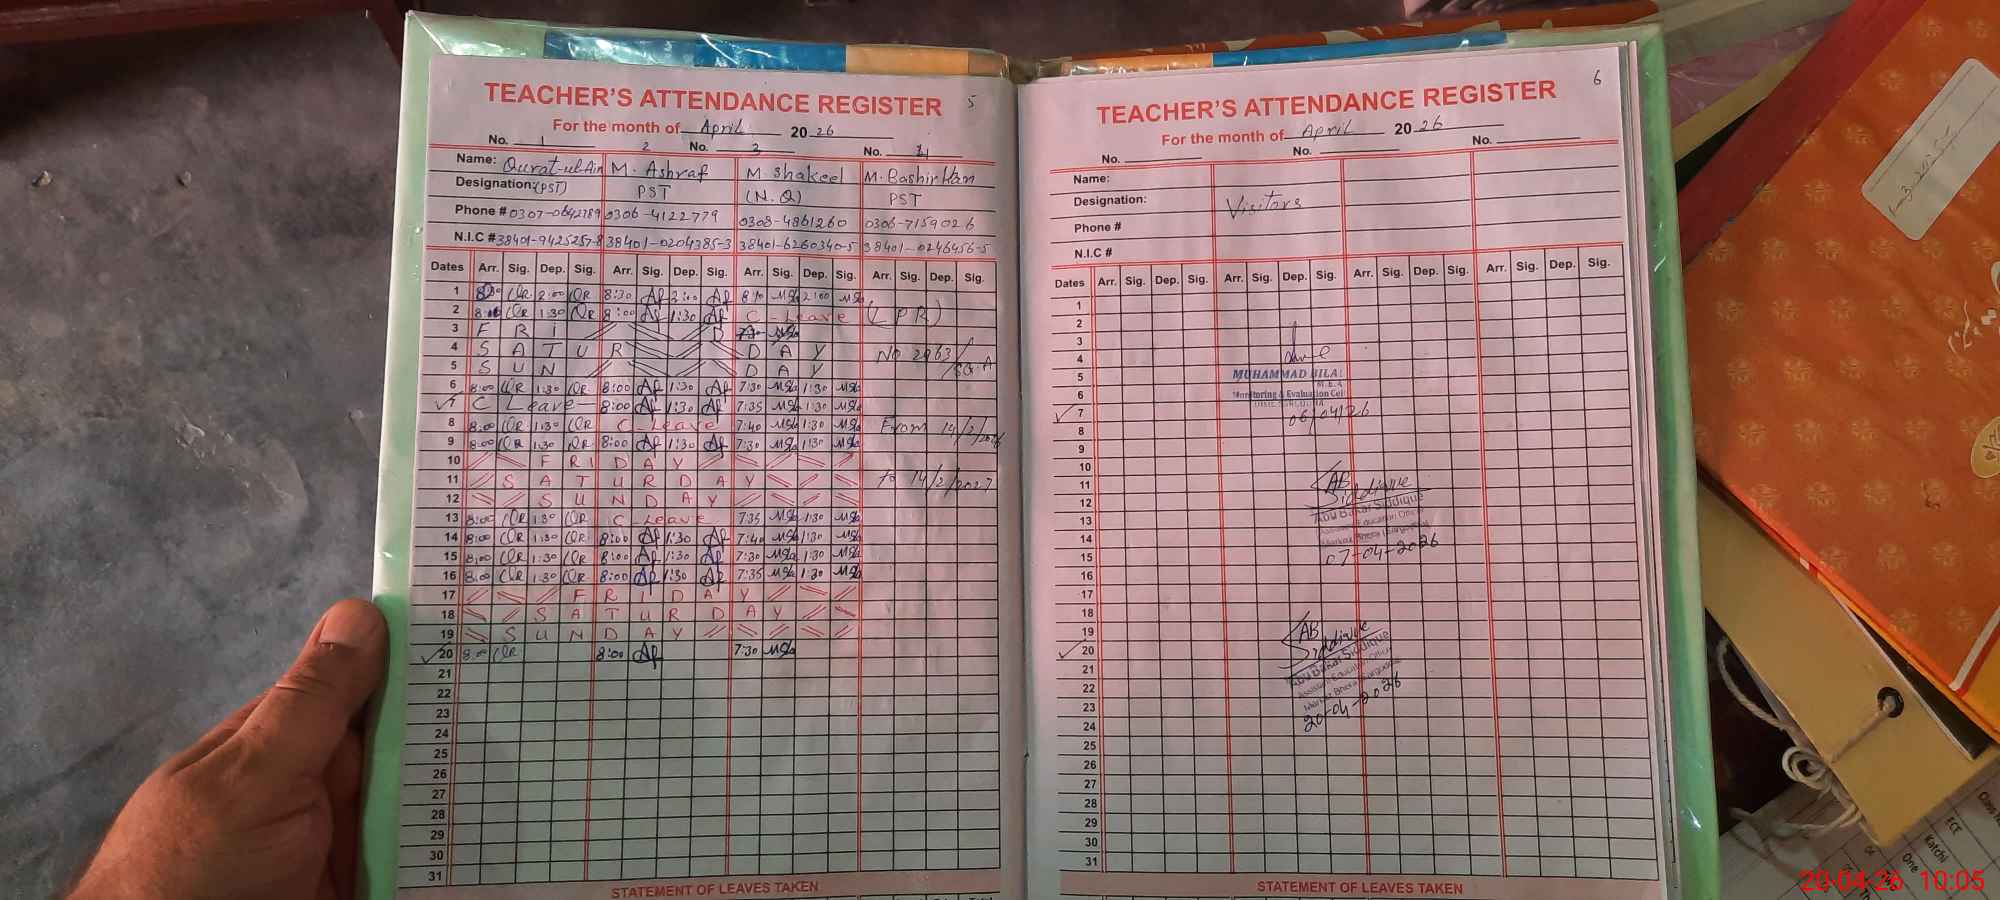 TEACHER'S ATTENDANCE REGISTER 5
For the month of April 20 26
No. 1 2 No. 3 No. 4
Name: Qurat-ul-Ain M. Ashraf M Shakeel M. Bashir Khan
Designation: (PST) PST (N.Q) PST
Phone # 0307-0642789 0306-4122779 0308-4861260 0306-7159026
N.I.C # 38401-9425257-8 38401-0204385-3 38401-6260340-5 38401-0246456-5
Dates Arr. Sig. Dep. Sig. Arr. Sig. Dep. Sig. Arr. Sig. Dep. Sig. Arr. Sig. Dep. Sig.
1 QR 2:00 QR 8:30 Af 2:00 Af 8:10 MSh 2:00 MSh
2 QR 1:30 QR 8:00 Af 1:30 Af C-Leave (LPR)
3 F R I D
4 S A T U R D A Y No 2963/
5 S U N D A Y
6 8:00 QR 1:30 QR 8:00 Af 1:30 Af 7:30 MSh 1:30 MSh
7 C Leave 8:00 Af 1:30 Af 7:35 MSh 1:30 MSh
8 8:00 QR 1:30 QR C-Leave 7:40 MSh 1:30 MSh From 14/2/2026
9 8:00 QR 1:30 QR 8:00 Af 1:30 Af 7:30 MSh 1:30 MSh
10 F R I D A Y
11 S A T U R D A Y to 14/2/2027
12 S U N D A Y
13 8:00 QR 1:30 QR C-Leave 7:35 MSh 1:30 MSh
14 8:00 QR 1:30 QR 8:00 Af 1:30 Af 7:40 MSh 1:30 MSh
15 8:00 QR 1:30 QR 8:00 Af 1:30 Af 7:30 MSh 1:30 MSh
16 8:00 QR 1:30 QR 8:00 Af 1:30 Af 7:35 MSh 1:30 MSh
17 F R I D A Y
18 S A T U R D A Y
19 S U N D A Y
20 8:00 QR 8:00 Af 7:30 MSh
21
22
23
24
25
26
27
28
29
30
31
STATEMENT OF LEAVES TAKEN
TEACHER'S ATTENDANCE REGISTER 6
For the month of April 20 26
No. No. No.
Name:
Designation: Visitors
Phone #
N.I.C #
Dates Arr. Sig. Dep. Sig. Arr. Sig. Dep. Sig. Arr. Sig. Dep. Sig. Arr. Sig. Dep. Sig.
1
2
3
4
5 MUHAMMAD BILAL
M.E.A
6 Monitoring & Evaluation Cell
7 06/04/26
8
9
10
11 AB
12 Siddique
13 Abu Bakar Siddique
14 Assistant Education Officer
Markaz Bhera (Sargodha)
15 07-04-2026
16
17
18
19 AB
20 Siddique
21 Abu Bakar Siddique
22 Assistant Education Officer
Markaz Bhera (Sargodha)
23 20-04-2026
24
25
26
27
28
29
30
31
STATEMENT OF LEAVES TAKEN
ECE
Katchi
One
20-04-26 10:05